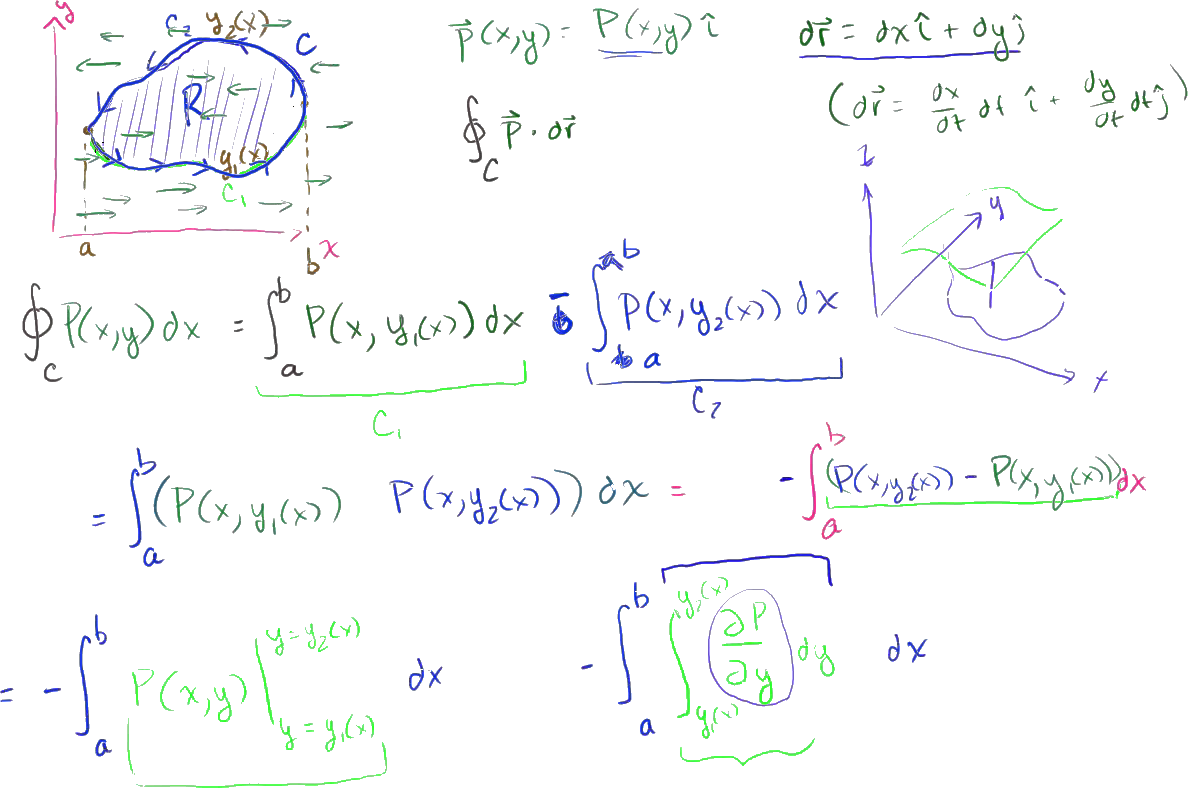 y C₂ y₂(x) C
R
y₁(x)
C₁
a b x
P⃗(x,y) = P(x,y) î
dr⃗ = dx î + dy ĵ
(dr⃗ = dx/dt dt î + dy/dt dt ĵ)
∮_C P⃗ · dr⃗
z y x
∮_C P(x,y) dx = ∫_a^b P(x, y₁(x)) dx - ∫_a^b P(x, y₂(x)) dx
C₁ C₂
= ∫_a^b (P(x, y₁(x)) P(x, y₂(x))) dx = - ∫_a^b (P(x,y₂(x)) - P(x,y₁(x))) dx
= - ∫_a^b P(x,y) |_{y = y₁(x)}^{y = y₂(x)} dx - ∫_a^b ∫_{y₁(x)}^{y₂(x)} ∂P/∂y dy dx